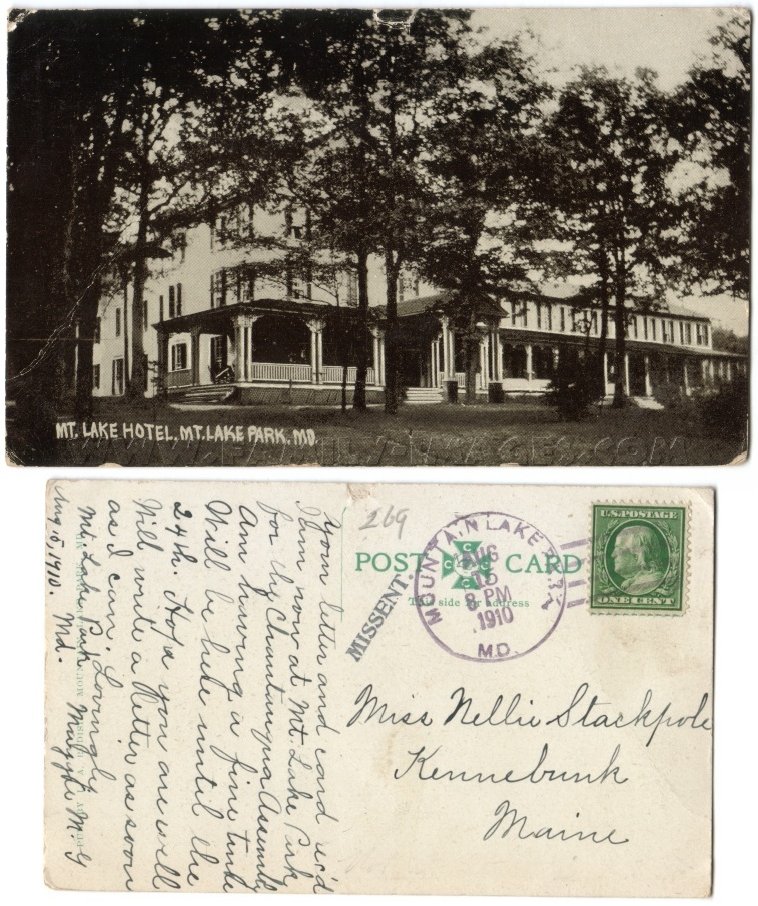 MT. LAKE HOTEL. MT. LAKE PARK. MD.
WWW.FAMILY-IMAGES.COM
Your letter and card rec'd
I am now at Mt. Lake Park
for the Chautauqua Assembly
Am having a fine time
Will be here until the
24th. Hope you are well
Will write a letter as soon
as I can. Lovingly
Mt. Lake Park
Md.
Aug 15, 1910.
269
POST CARD
This side for address
MISSENT.
MOUNTAIN LAKE PARK
AUG
15
8 PM
1910
MD.
U.S. POSTAGE
ONE CENT
Miss Nellie Stackpole
Kennebunk
Maine